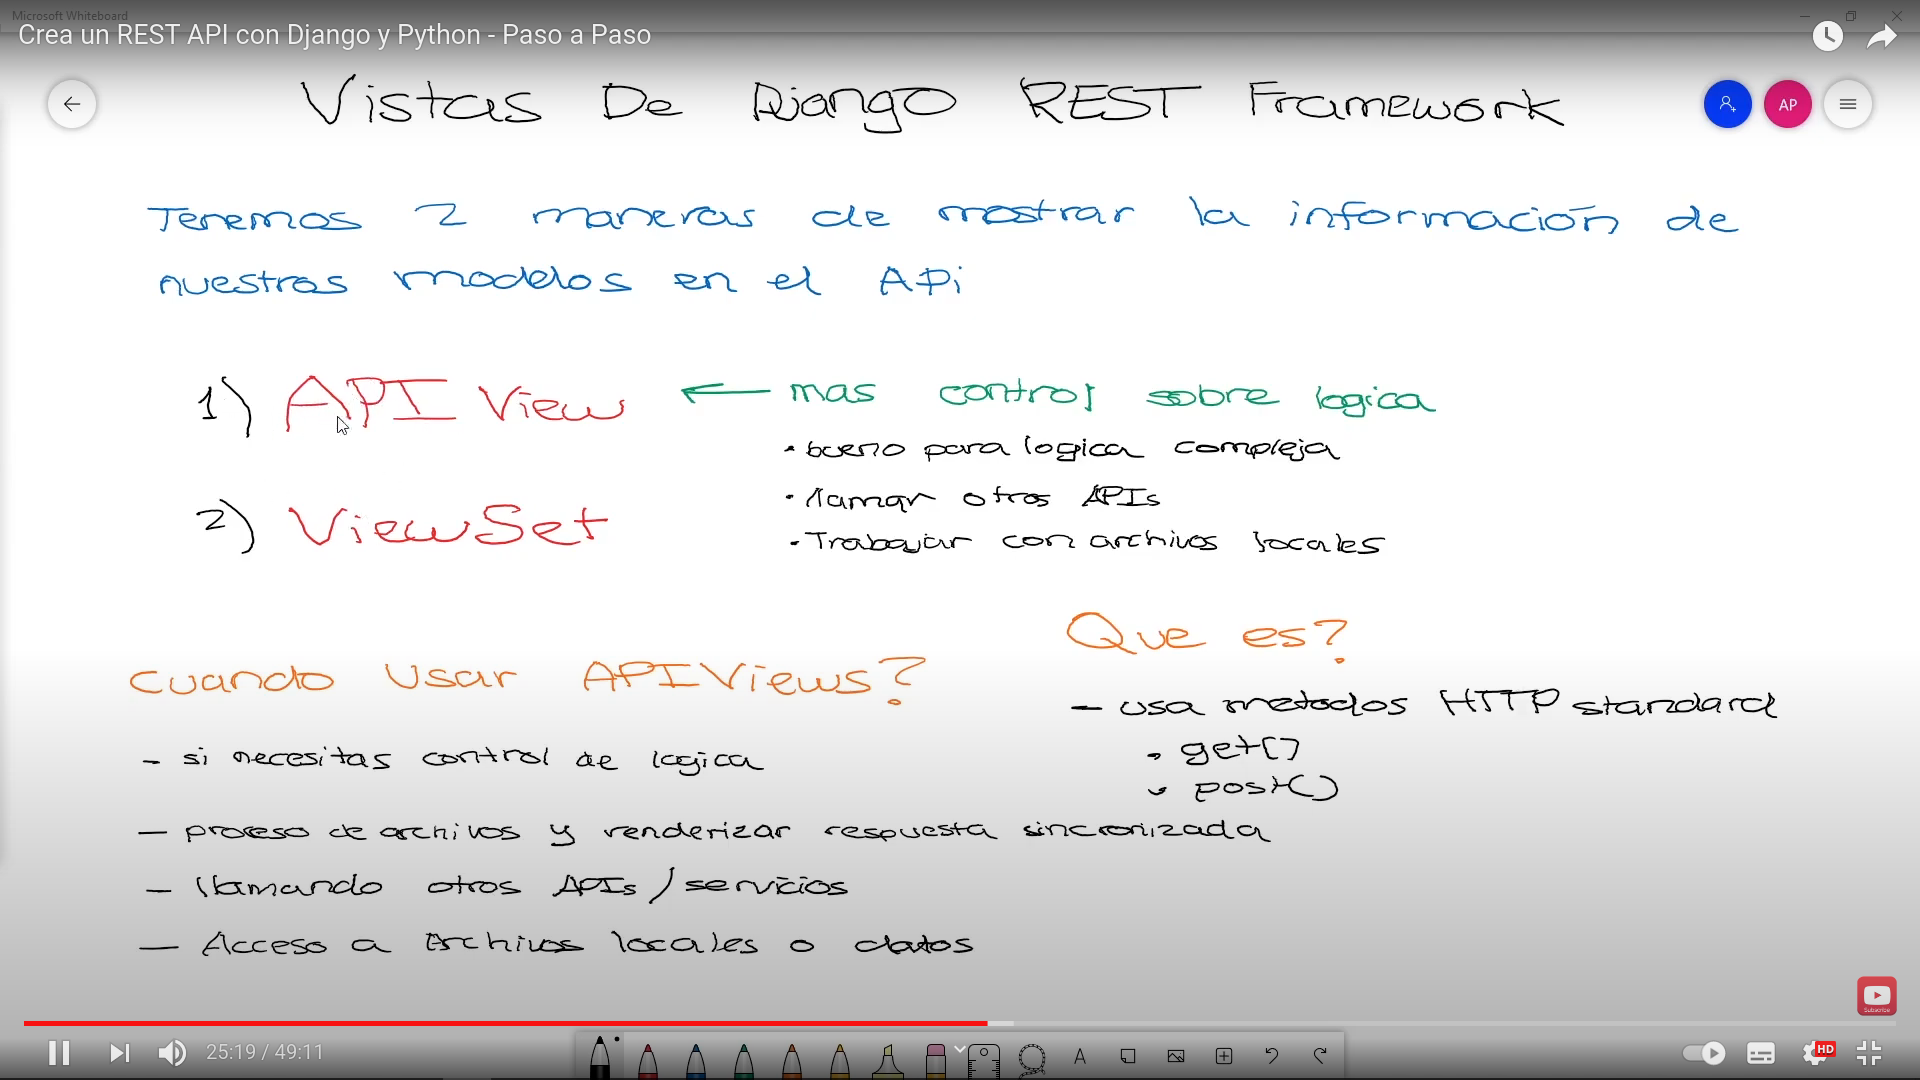 Microsoft Whiteboard
Crea un REST API con Django y Python - Paso a Paso
Vistas De Django REST Framework
AP
Tenemos 2 maneras de mostrar la información de
nuestros modelos en el APi
1) API View ← mas control sobre logica
• bueno para logica compleja
• llamar otros APIs
2) ViewSet
• Trabajar con archivos locales
Que es?
Cuando Usar APIViews?
- usa metodos HTTP standard
- si necesitas control de logica
• get()
• post()
- proceso de archivos y renderizar respuesta sincronizada
- llamando otros APIs / servicios
- Acceso a Archivos locales o datos
Subscribe
25:19 / 49:11
A
HD